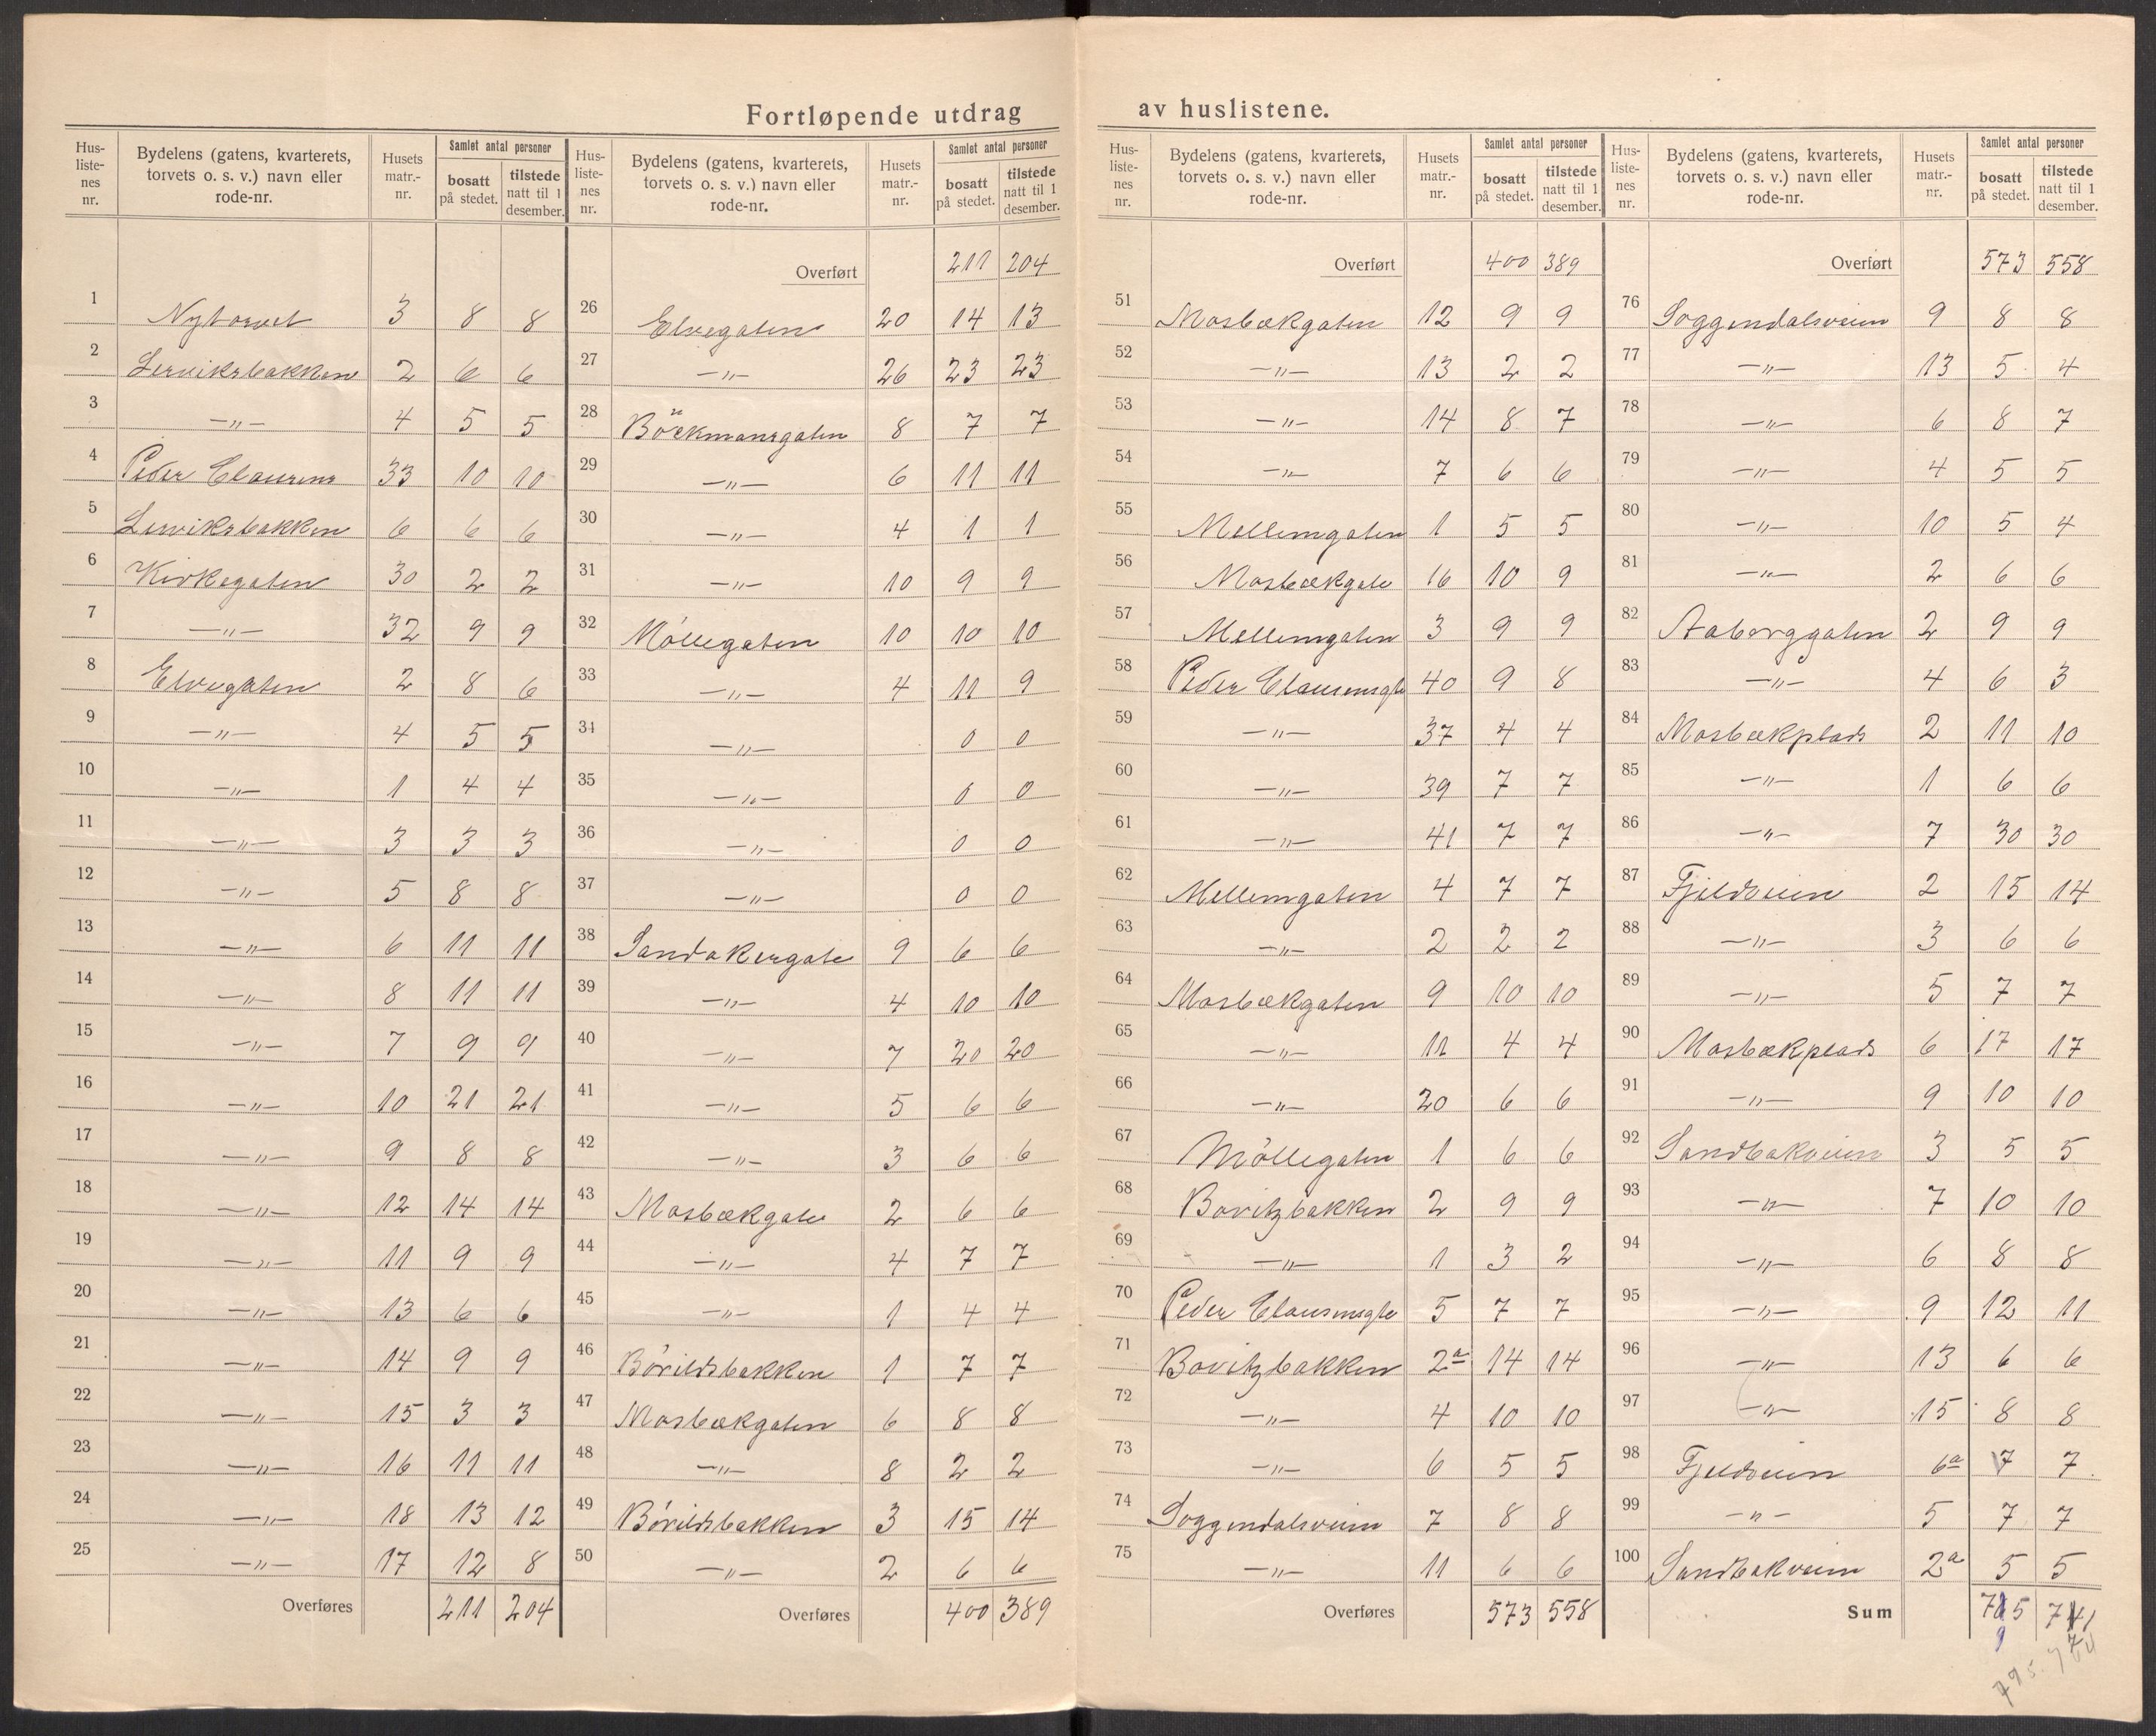 Fortløpende utdrag av huslistene.
Hus-liste-nes nr. | Bydelens (gatens, kvarterets, torvets o. s. v.) navn eller rode-nr. | Husets matr.-nr. | Samlet antal personer bosatt på stedet. | tilstede natt til 1 desember.
1 Nytorvet 3 8 8
2 Lerviksbakken 2 6 6
3 —„— 4 5 5
4 Peder Clausens 33 10 10
5 Lerviksbakken 6 6 6
6 Kirkegaten 30 2 2
7 —„— 32 9 9
8 Elvegaten 2 8 6
9 —„— 4 5 5
10 —„— 1 4 4
11 —„— 3 3 3
12 —„— 5 8 8
13 —„— 6 11 11
14 —„— 8 11 11
15 —„— 7 9 9
16 —„— 10 21 21
17 —„— 9 8 8
18 —„— 12 14 14
19 —„— 11 9 9
20 —„— 13 6 6
21 —„— 14 9 9
22 —„— 15 3 3
23 —„— 16 11 11
24 —„— 18 13 12
25 —„— 17 12 8
Overføres 211 204
Hus-liste-nes nr. | Bydelens (gatens, kvarterets, torvets o. s. v.) navn eller rode-nr. | Husets matr.-nr. | Samlet antal personer bosatt på stedet. | tilstede natt til 1 desember.
Overført 211 204
26 Elvegaten 20 14 13
27 —„— 26 23 23
28 Böckmansgaten 8 7 7
29 —„— 6 11 11
30 —„— 4 1 1
31 —„— 10 9 9
32 Möllegaten 10 10 10
33 —„— 4 11 9
34 —„— 0 0
35 —„— 0 0
36 —„— 0 0
37 —„— 0 0
38 Sandakergate 9 6 6
39 —„— 4 10 10
40 —„— 7 20 20
41 —„— 5 6 6
42 —„— 3 6 6
43 Mosbækgate 2 6 6
44 —„— 4 7 7
45 —„— 1 4 4
46 Börildsbakken 1 7 7
47 Mosbækgaten 6 8 8
48 —„— 8 2 2
49 Börildsbakken 3 15 14
50 —„— 2 6 6
Overføres 400 389
Hus-liste-nes nr. | Bydelens (gatens, kvarterets, torvets o. s. v.) navn eller rode-nr. | Husets matr.-nr. | Samlet antal personer bosatt på stedet. | tilstede natt til 1 desember.
Overført 400 389
51 Mosbækgaten 12 9 9
52 —„— 13 2 2
53 —„— 14 8 7
54 —„— 7 6 6
55 Mellemgaten 1 5 5
56 Mosbækgate 16 10 9
57 Mellemgaten 3 9 9
58 Peder Clausensgt 40 9 8
59 —„— 37 4 4
60 —„— 39 7 7
61 —„— 41 7 7
62 Mellemgaten 4 7 7
63 —„— 2 2 2
64 Mosbækgaten 9 10 10
65 —„— 11 4 4
66 —„— 20 6 6
67 Möllegaten 1 6 6
68 Bovitzbakken 2 9 9
69 —„— 1 3 2
70 Peder Clausensgte 5 7 7
71 Bovitzbakken 2a 14 14
72 —„— 4 10 10
73 —„— 6 5 5
74 Soggendalsveien 7 8 8
75 —„— 11 6 6
Overføres 573 558
Hus-liste-nes nr. | Bydelens (gatens, kvarterets, torvets o. s. v.) navn eller rode-nr. | Husets matr.-nr. | Samlet antal personer bosatt på stedet. | tilstede natt til 1 desember.
Overført 573 558
76 Soggendalsveien 9 8 8
77 —„— 13 5 4
78 —„— 6 8 7
79 —„— 4 5 5
80 —„— 10 5 4
81 —„— 2 6 6
82 Aaberggaten 2 9 9
83 —„— 4 6 3
84 Mosbækplads 2 11 10
85 —„— 1 6 6
86 —„— 7 30 30
87 Fjeldveien 2 15 14
88 —„— 3 6 6
89 —„— 5 7 7
90 Mosbækplads 6 17 17
91 —„— 9 10 10
92 Sandbakveien 3 5 5
93 —„— 7 10 10
94 —„— 6 8 8
95 —„— 9 12 11
96 —„— 13 6 6
97 —„— 15 8 8
98 Fjeldveien 6a 7 7
99 —„— 5 7 7
100 Sandbakveien 2a 5 5
Sum
795